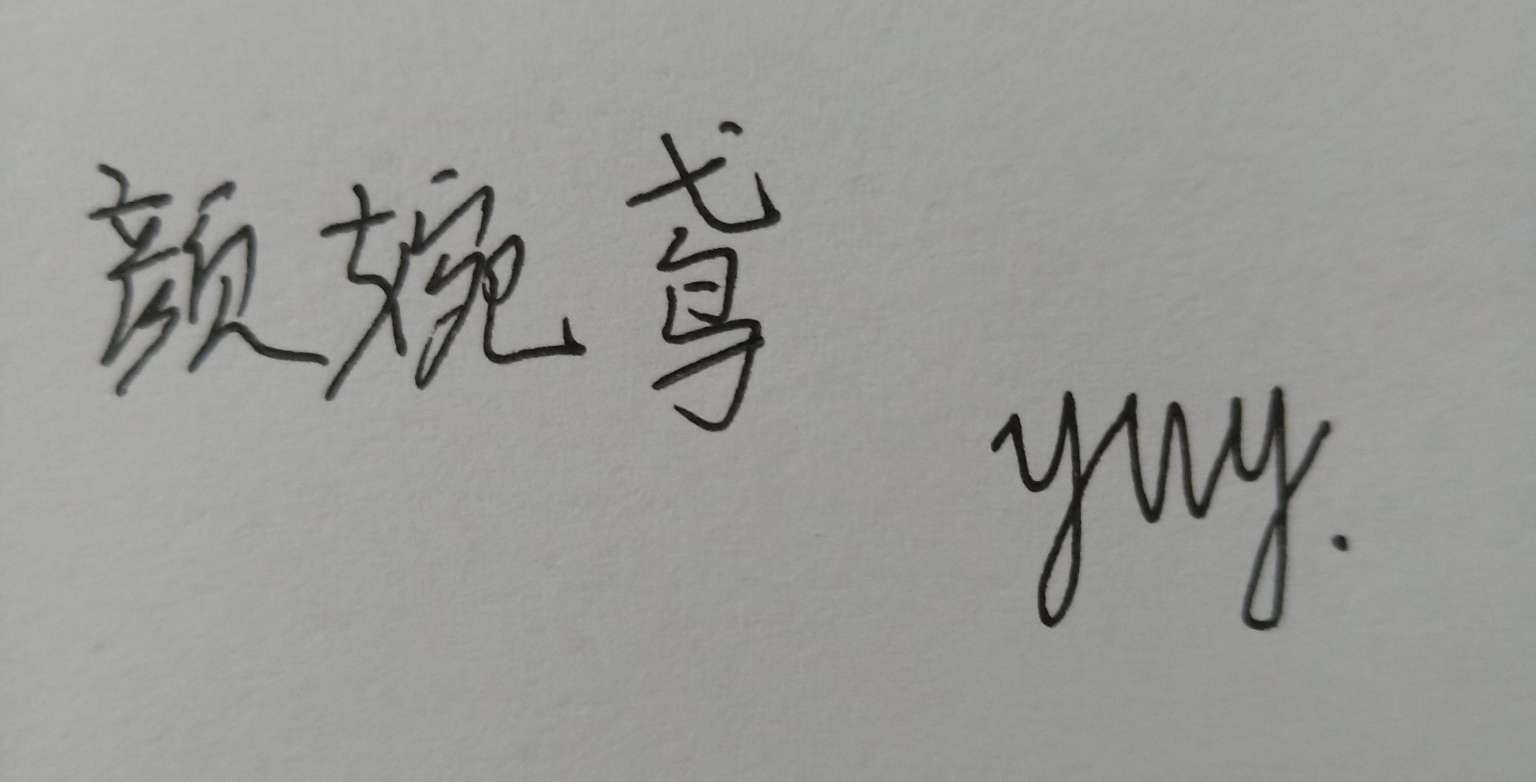 颜婉鸢
ywy.